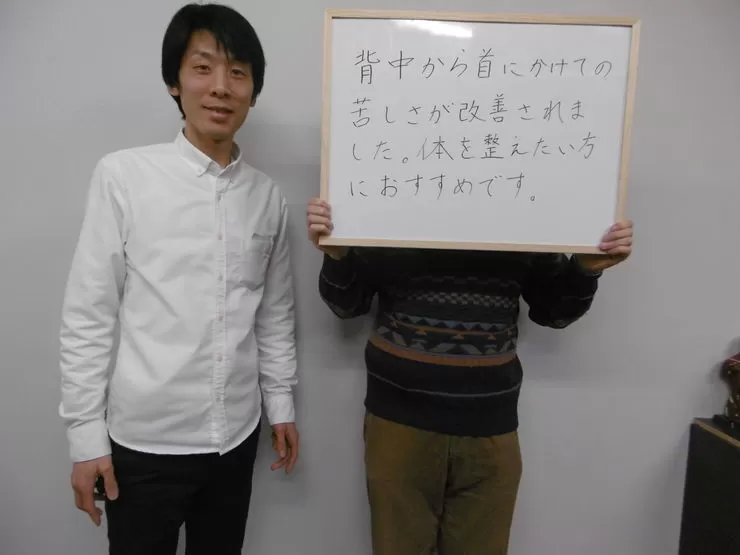 背中から首にかけての
苦しさが改善されま
した。体を整えたい方
におすすめです。